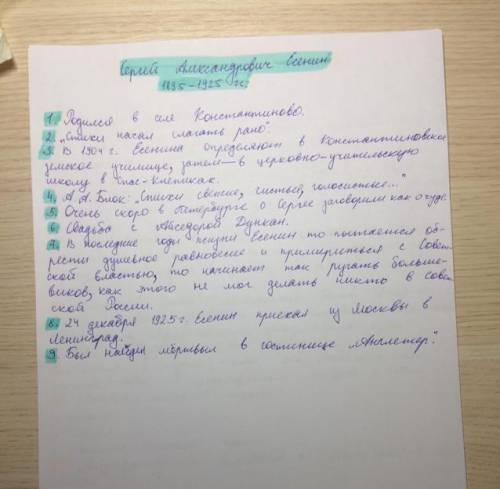 Сергей Александрович Есенин
1895-1925 гг.
1. Родился в селе Константиново.
2. „Стихи начал слагать рано".
3. В 1904 г. Есенина определяют в Константиновское
земское училище, затем — в церковно-учительскую
школу в Спас-Клепиках.
4. А. А. Блок: „Стихи свежие, чистые, голосистые..."
5. Очень скоро в Петербурге о Сергее заговорили как о чуде.
6. Свадьба с Айседорой Дункан.
7. В последние годы жизни Есенин то пытается об-
рести душевное равновесие и примириться с Совет-
ской властью, то начинает так ругать больше-
виков, как этого не мог делать никто в Совет-
ской России.
8. 24 декабря 1925 г. Есенин приехал из Москвы в
Ленинград.
9. Был найден мёртвым в гостинице „Англетер".